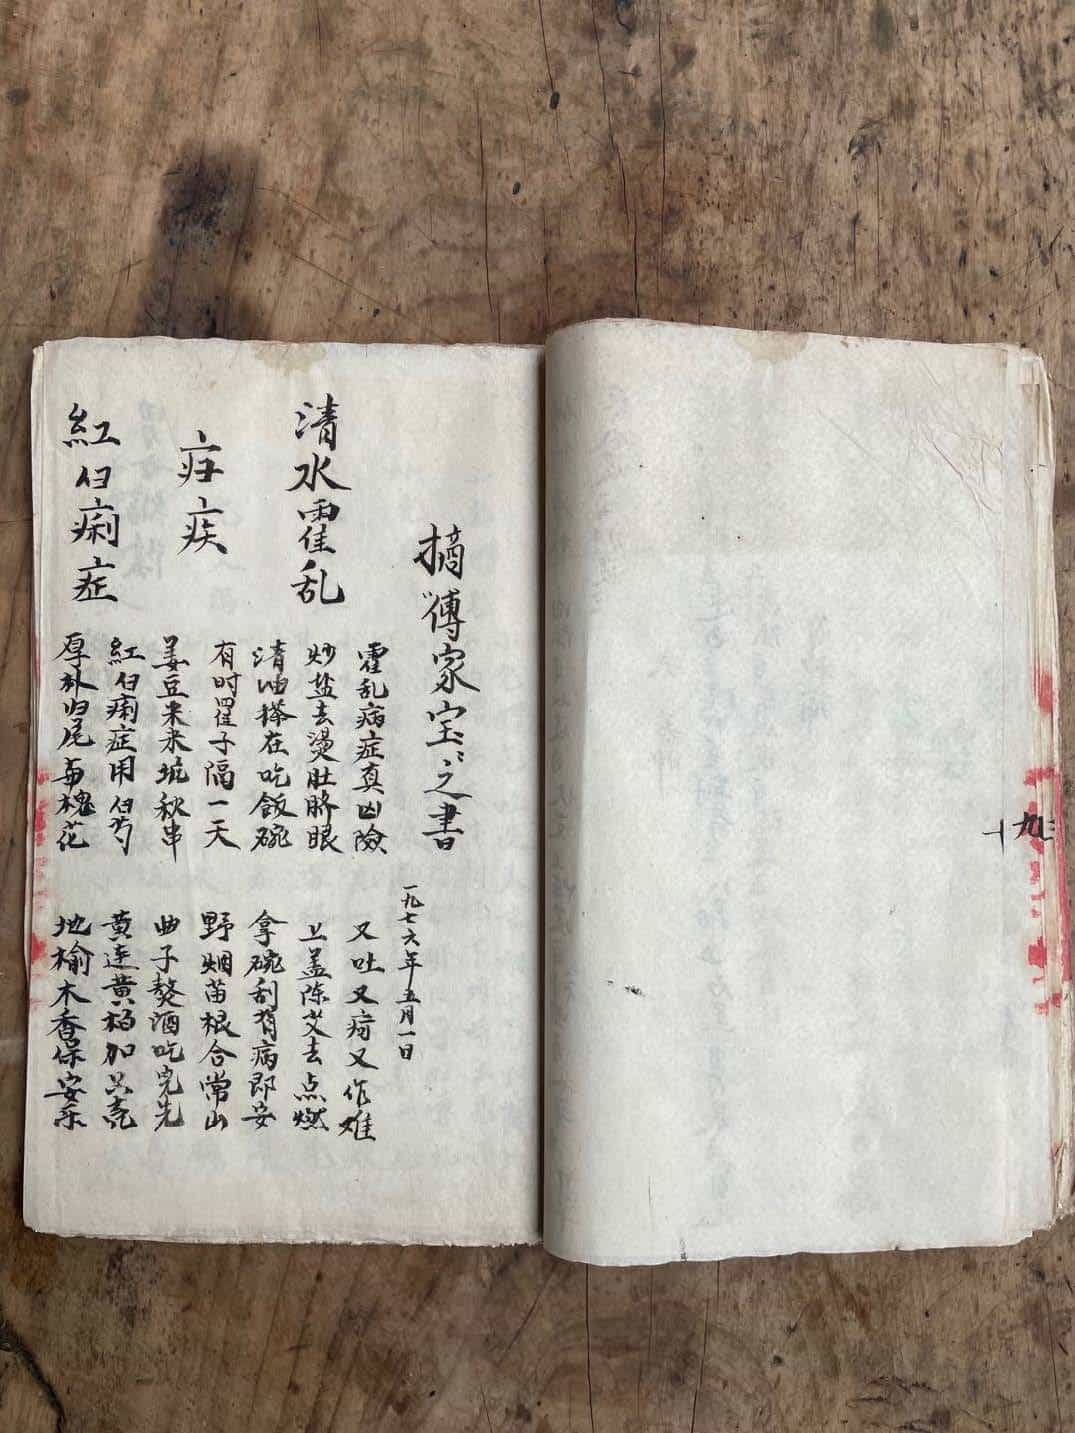 摘傳家宝之書
一九七六年五月一日
清水霍乱
霍乱病症真凶險 又吐又疴又作难
炒盐去燙肚脐眼 上盖陈艾去点燃
清油搽在吃飯碗 拿碗刮背病即安
疟疾
有时罢子隔一天 野烟苗根合常山
姜豆来米 秋串 曲子熬酒吃完先
紅白痢症
紅白痢症用白芍 黄连黄柏加只壳
厚朴归尾与槐花 地榆木香保安乐
十九